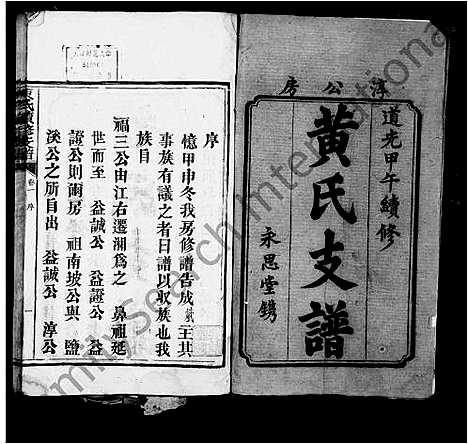 淳公房
道光甲午續修
黃氏支譜
永思堂鐫
序
憶甲申冬我房修譜告成
事族有議之者曰譜以收族也我
族目
福三公由江右遷湖爲之　鼻祖延
世而至　益誠公　益證公　益
證公則爾房　祖南坡公與　鹽
溪公之所自出　益誠公　淳公
卷一　序
一